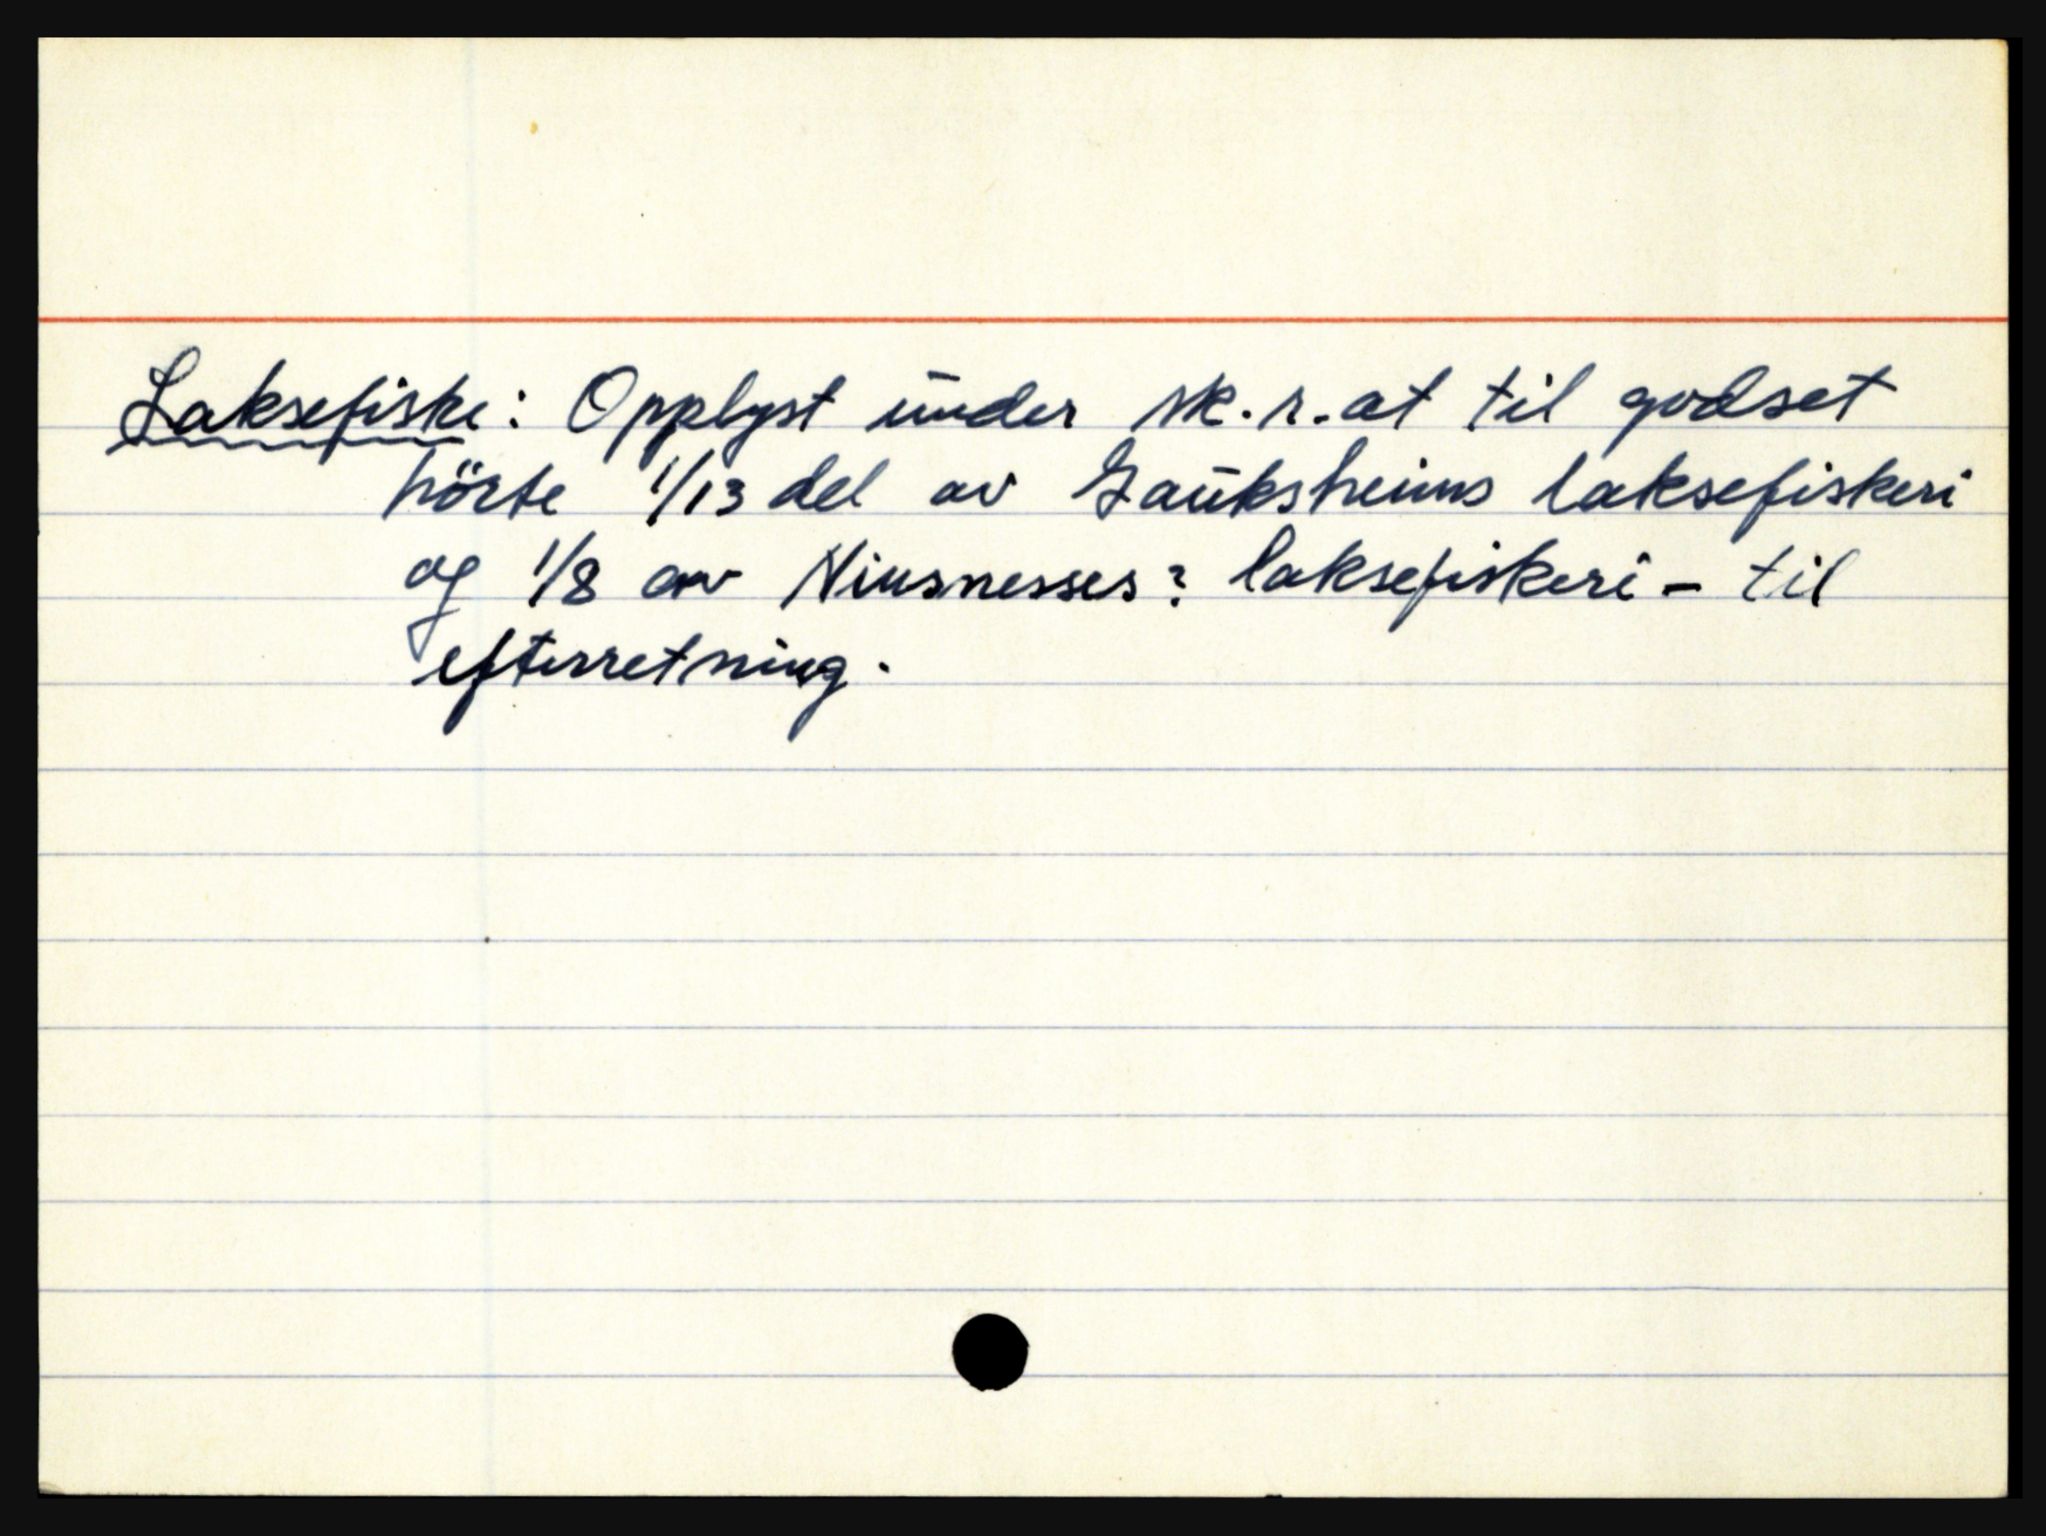 Laksefiske: Opplyst under sk. r. at til godset
hörte 1/13 del av Gauksheims laksefiskeri
og 1/8 av Niusnesses? laksefiskeri - til
efterretning.